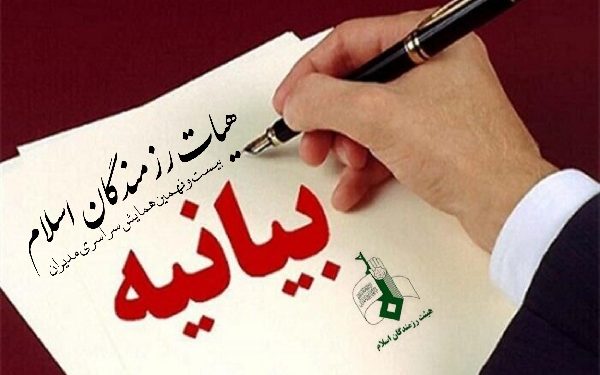 هیات رزمندگان اسلام
بیست و نهمین همایش سراسری مدیران
بیانیه
هیئت رزمندگان اسلام